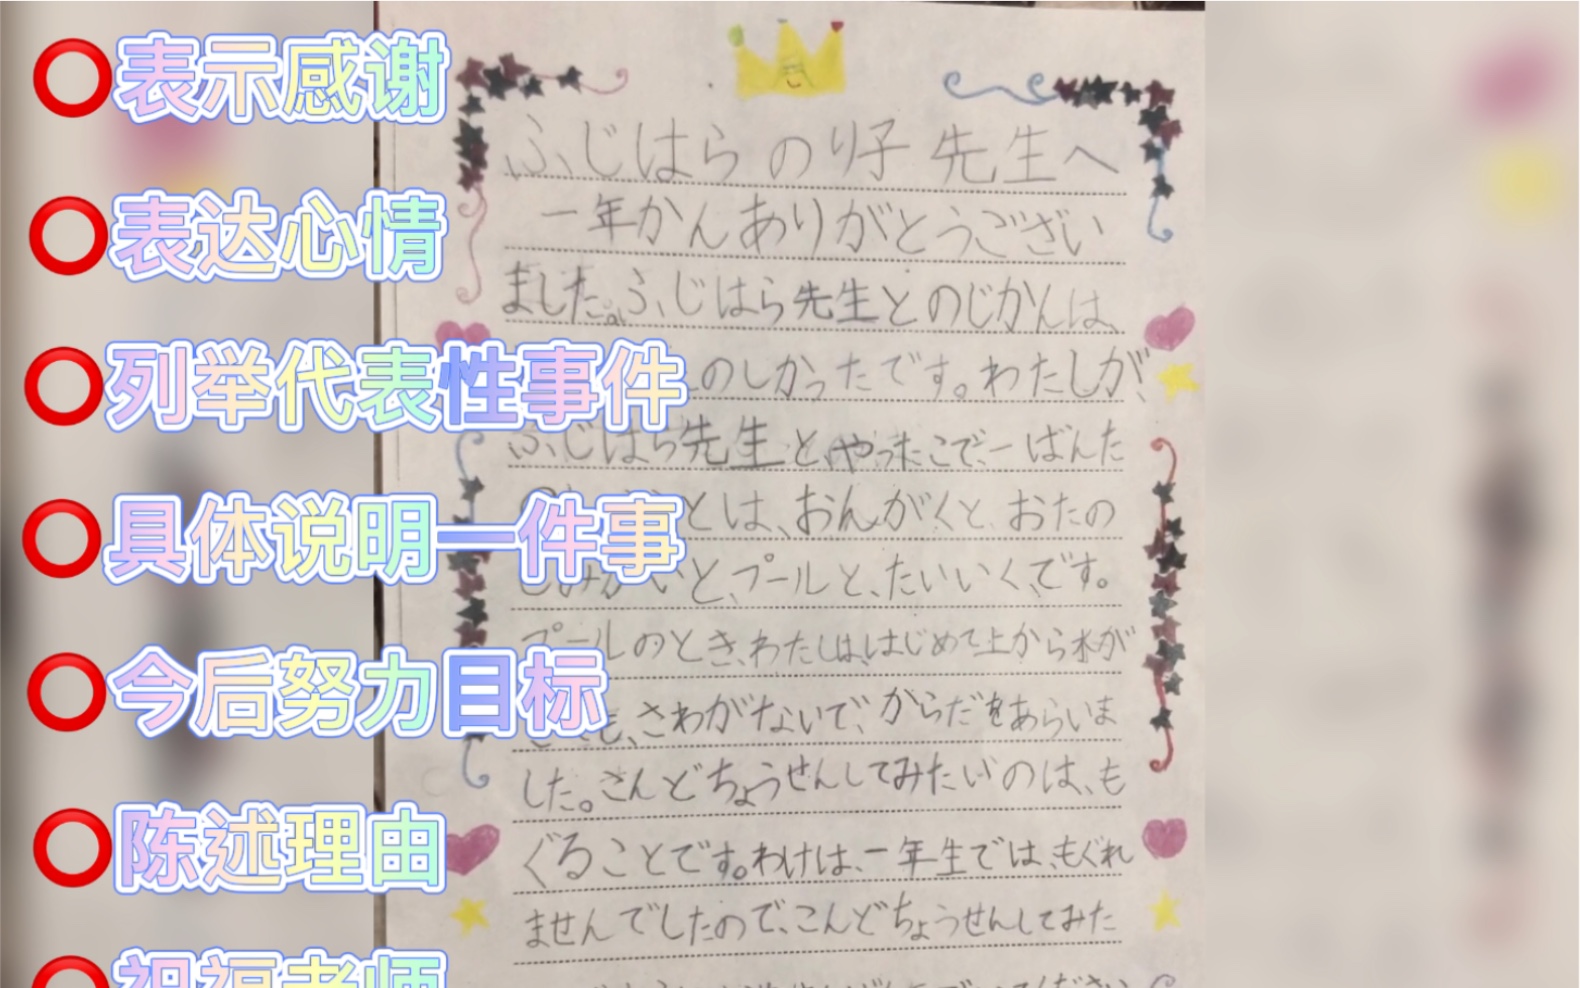 表示感谢
表达心情
列举代表性事件
具体说明一件事
今后努力目标
陈述理由
祝福老师
ふじはらのり子先生へ
一年かんありがとうござい
ました。ふじはら先生とのじかんは、
のしかったです。わたしが、
ふじはら先生と、やったこで、一ばんた
とは、おんがくと、おたの
いと、プールと、たいいく、です。
プールのとき、わたしは、はじめて上から水が
も、さわがないで、からだをあらいま
した。さんどちょうせんしてみたいのは、も
ぐることです。わけは、一年生では、もぐれ
ませんでしたので、こんどちょうせんしてみた